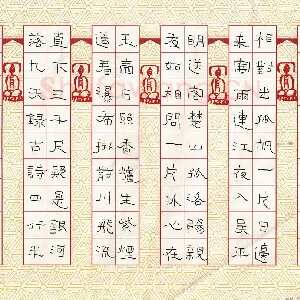 相對出孤帆一片日邊
來寒雨連江夜入吳江
明送客楚山孤洛陽親
友如相問一片冰心在
玉壺日照香爐生紫煙
遙看瀑布掛前川飛流
直下三千尺疑是銀河
落九天錄古詩四